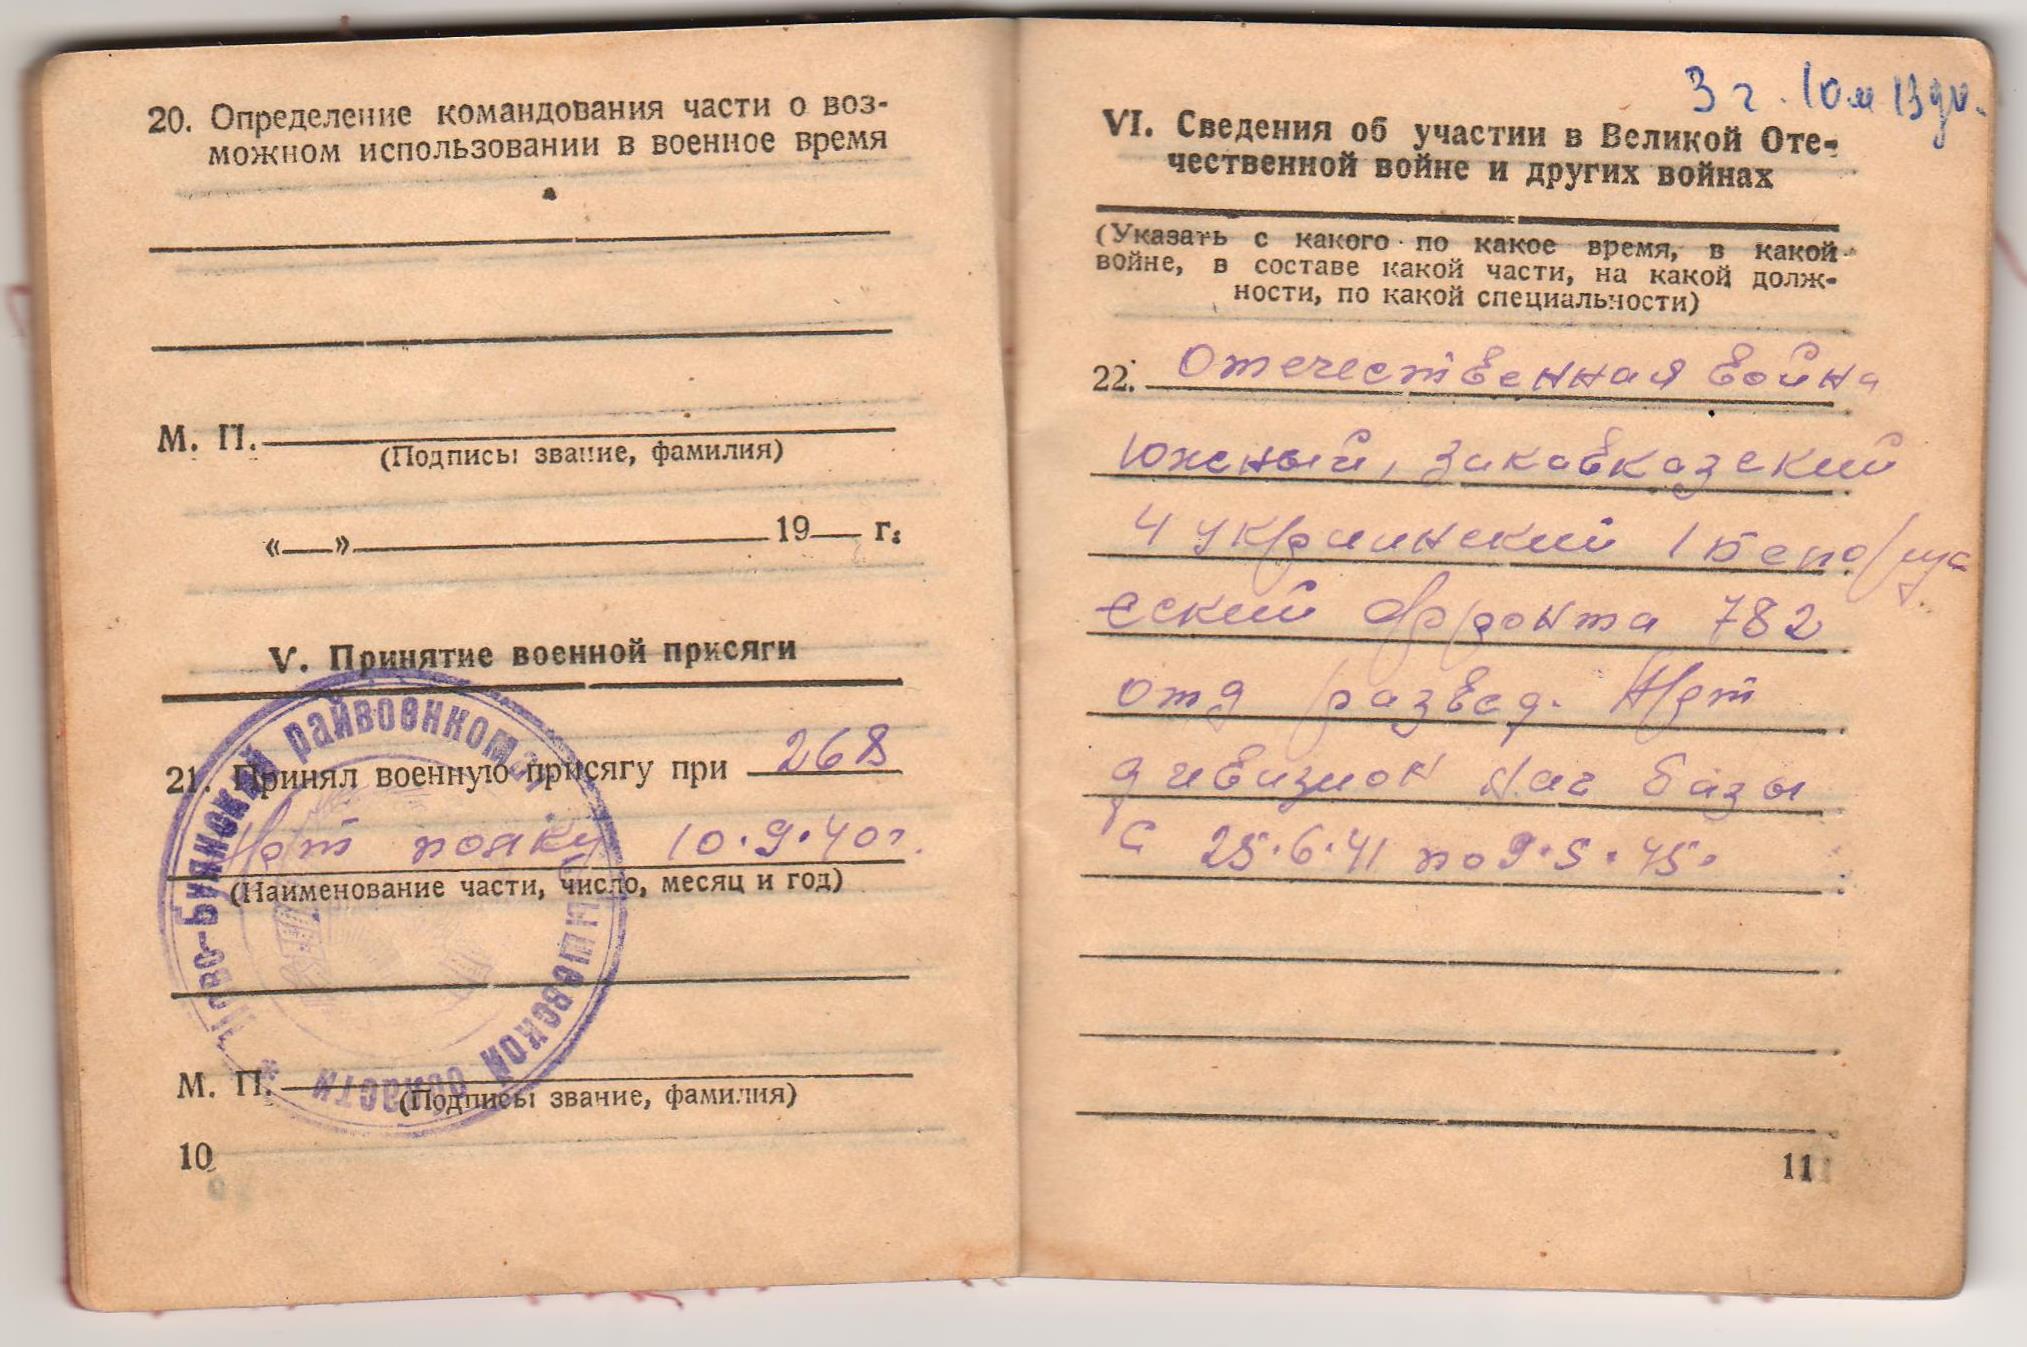 20. Определение командования части о воз-
можном использовании в военное время
М. П.
(Подписы звание, фамилия)
«__» 19__ г.
V. Принятие военной присяги
21. Принял военную присягу при 268
Арт полку 10.9.40г.
(Наименование части, число, месяц и год)
М. П.
(Подписы звание, фамилия)
райвоенкомат
области
10
3 г. 10м 13дн.
VI. Сведения об участии в Великой Оте-
чественной войне и других войнах
(Указать с какого по какое время, в какой
войне, в составе какой части, на какой долж-
ности, по какой специальности)
22. Отечественная война
Южный, закавказский
4 украинский 1 Белорус
ский фронта 782
отд развед. Арт
дивизион нач базы
с 25.6.41 по 9.5.45.
11